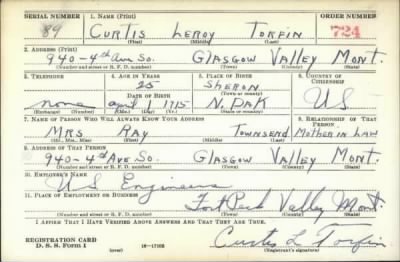 SERIAL NUMBER 1. NAME (Print) ORDER NUMBER
89 CURTIS LEROY TORFIN 724
(First) (Middle) (Last)
2. ADDRESS (Print)
940-4th Ave So. GLASGOW VALLEY MONT.
(Number and street or R. F. D. number) (Town) (County) (State)
3. TELEPHONE 4. AGE IN YEARS 5. PLACE OF BIRTH 6. COUNTRY OF CITIZENSHIP
25 SHERON
DATE OF BIRTH (Town or county)
none april 1 1915 N. DAK US
(Exchange) (Number) (Mo.) (Day) (Yr.) (State or country)
7. NAME OF PERSON WHO WILL ALWAYS KNOW YOUR ADDRESS 8. RELATIONSHIP OF THAT PERSON
MRS RAY TOWNSEND MOTHER IN LAW
(Mr., Mrs., Miss) (First) (Middle) (Last)
9. ADDRESS OF THAT PERSON
940-4th AVE SO. GLASGOW VALLEY MONT.
(Number and street or R. F. D. number) (Town) (County) (State)
10. EMPLOYER'S NAME
US Engineers
11. PLACE OF EMPLOYMENT OR BUSINESS
Fort Peck Valley Mont.
(Number and street or R. F. D. number) (Town) (County) (State)
I AFFIRM THAT I HAVE VERIFIED ABOVE ANSWERS AND THAT THEY ARE TRUE.
REGISTRATION CARD
D. S. S. Form 1 (over) 16-17105 Curtis L Torfin
(Registrant's signature)